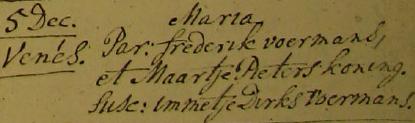 5 Dec. Maria
Venés. Par: frederik voermans,
et Maartje Pieters koning.
Susc: immetje Dirks Voermans.